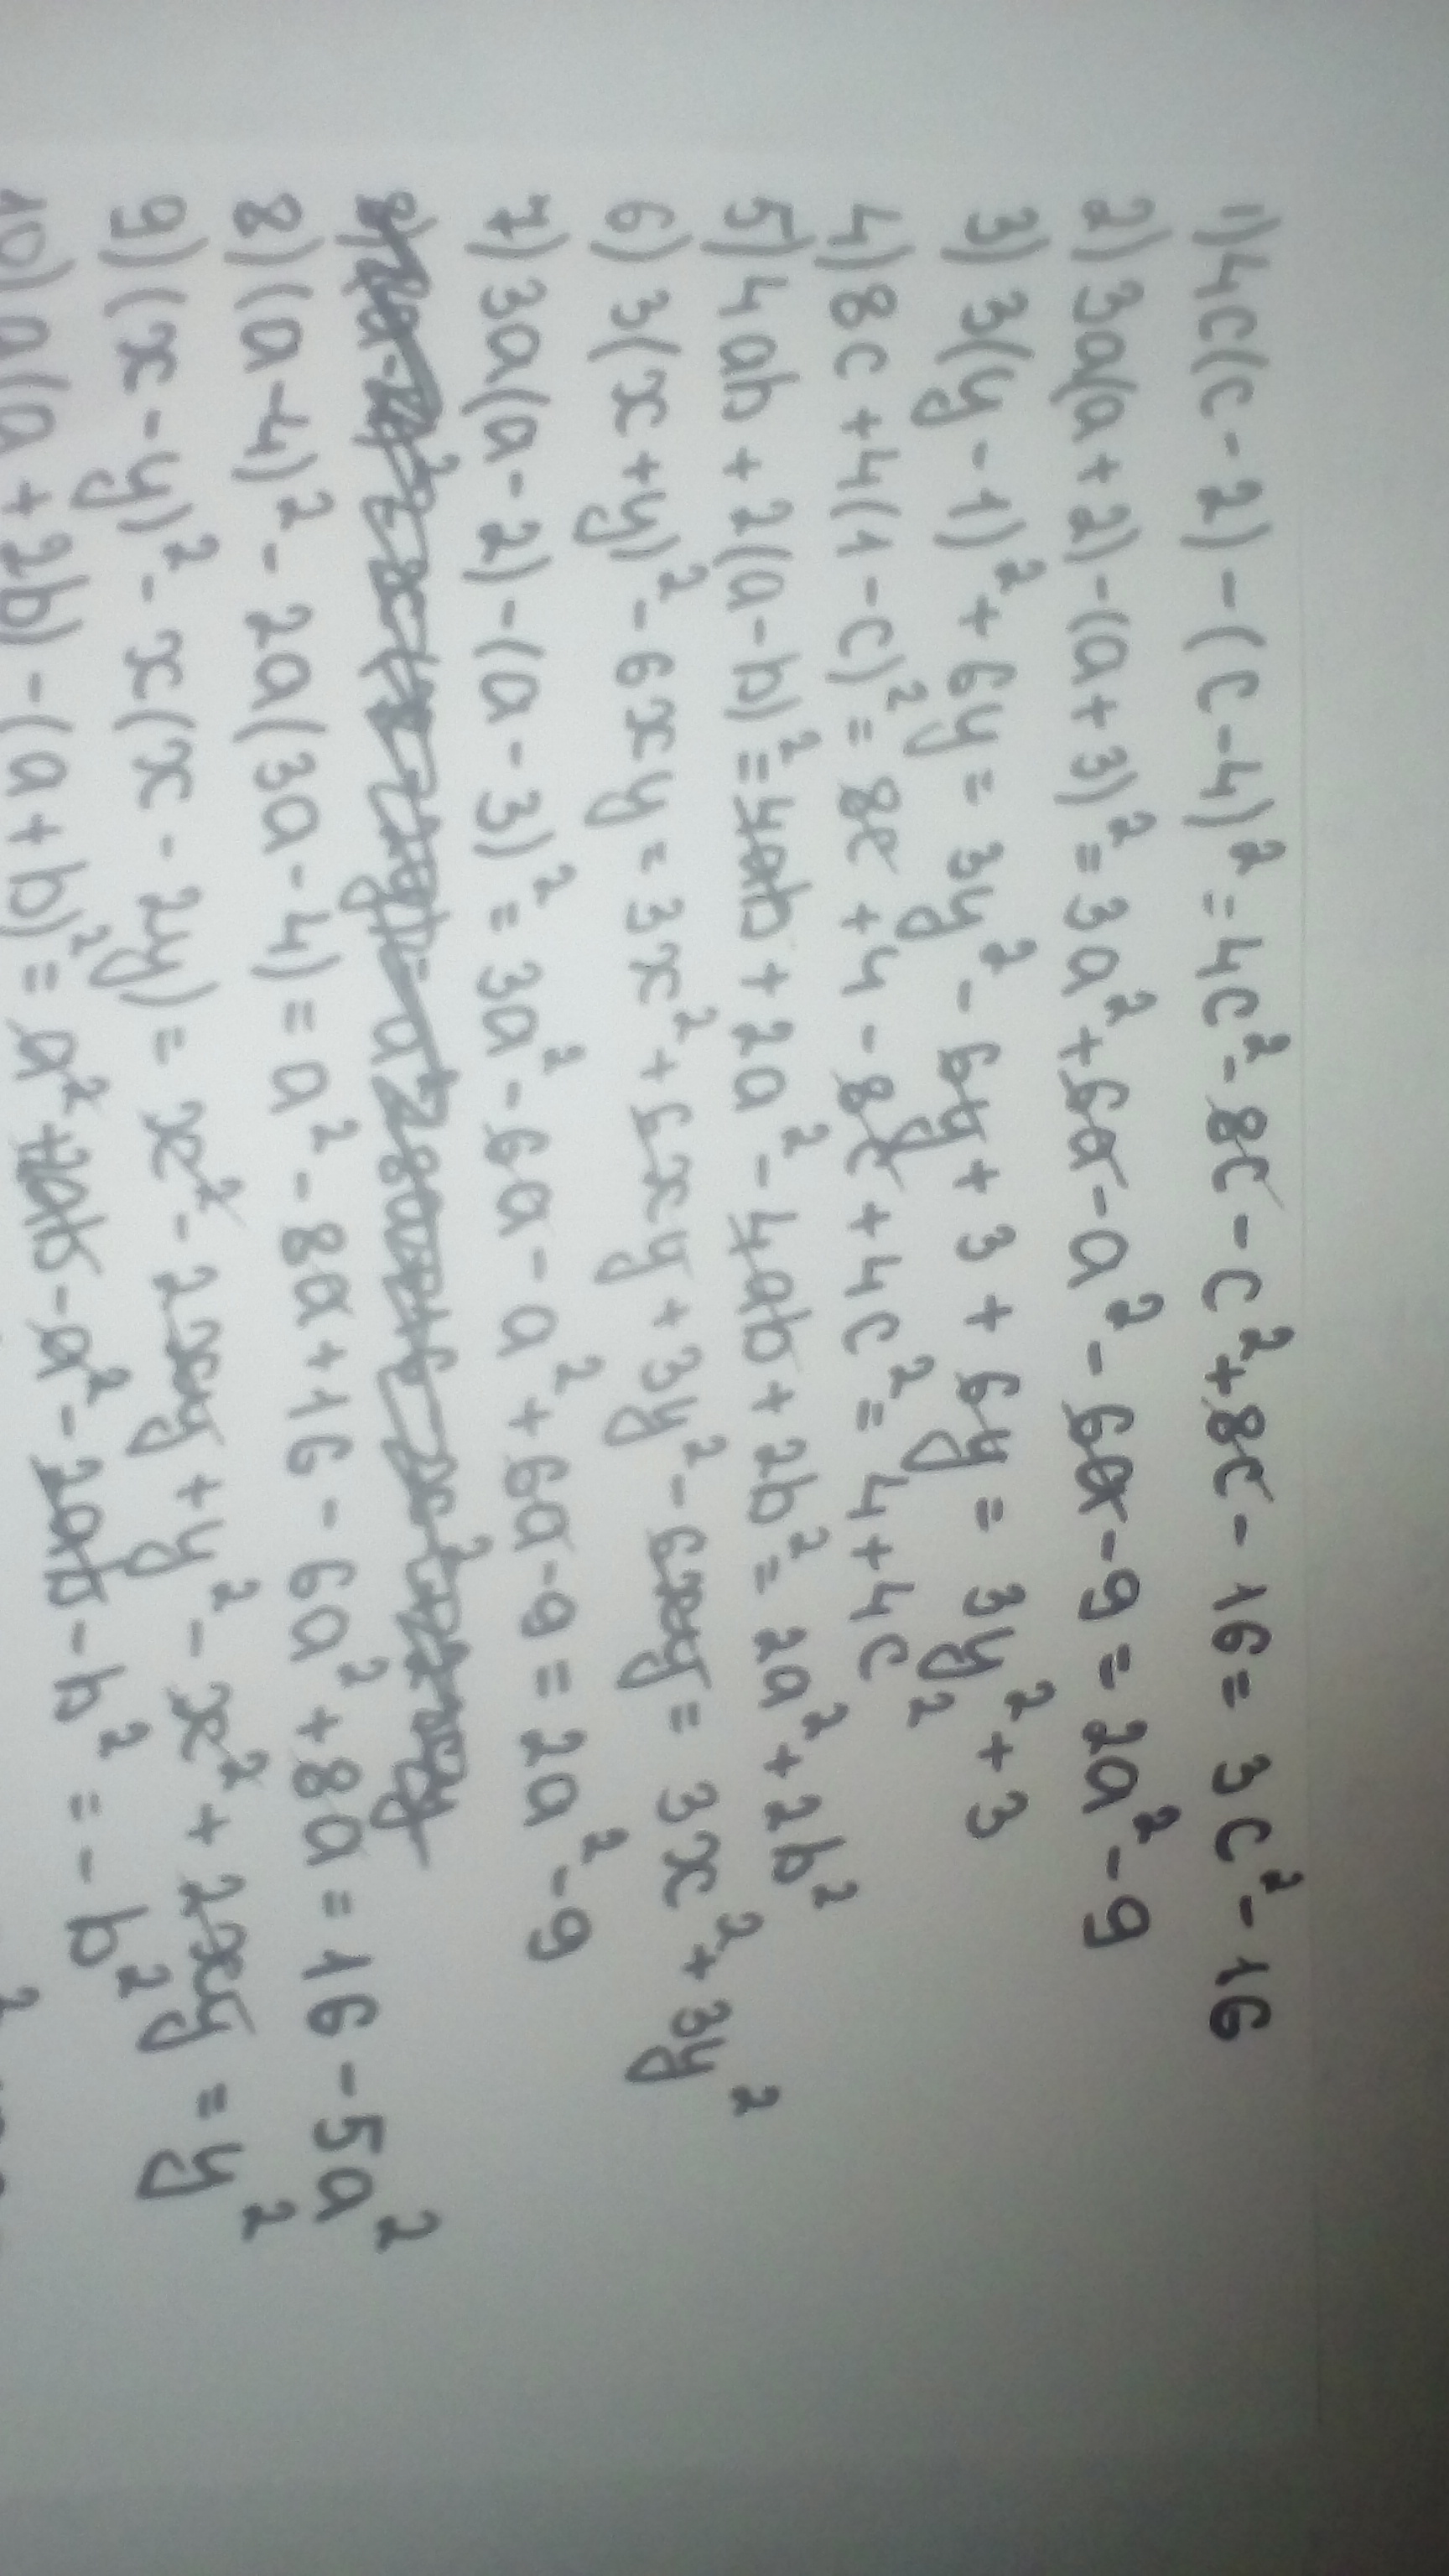 1) 4c(c-2)-(c-4)² = 4c²-8c-c²+8c-16 = 3c²-16
2) 3a(a+2)-(a+3)² = 3a²+6a-a²-6a-9 = 2a²-9
3) 3(y-1)²+6y = 3y²-6y+3+6y = 3y²+3
4) 8c+4(1-c)² = 8c+4-8c+4c² = 4+4c²
5) 4ab+2(a-b)² = 4ab+2a²-4ab+2b² = 2a²+2b²
6) 3(x+y)²-6xy = 3x²+6xy+3y²-6xy = 3x²+3y²
7) 3a(a-2)-(a-3)² = 3a²-6a-a²+6a-9 = 2a²-9
8) (a-4)²-2a(3a-4) = a²-8a+16-6a²+8a = 16-5a²
9) (x-y)²-x(x-2y) = x²-2xy+y²-x²+2xy = y²
10) a(a+2b)-(a+b)² = a²+2ab-a²-2ab-b² = -b²